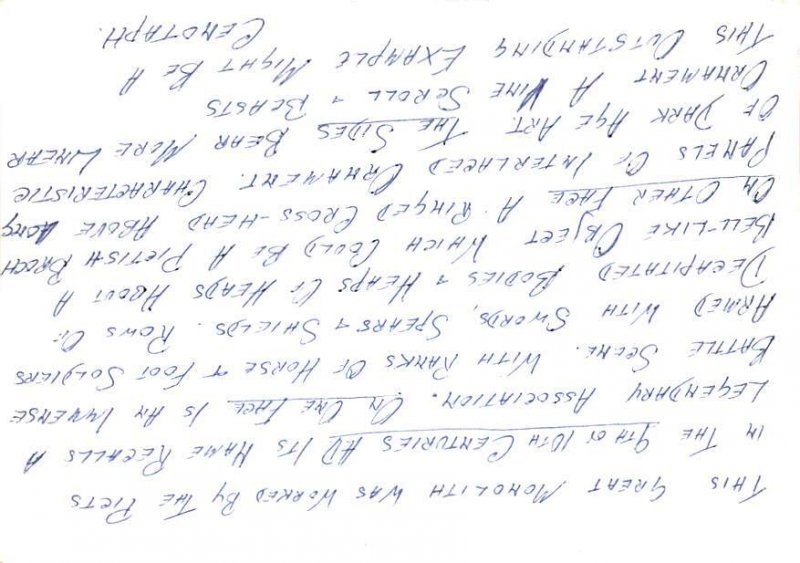 THIS GREAT MONOLITH WAS WORKED BY THE PICTS
IN THE 9TH OR 10TH CENTURIES AD ITS NAME RECALLS A
LEGENDARY ASSOCIATION. ON ONE FACE IS AN IMMENSE
BATTLE SCENE. WITH RANKS OF HORSE & FOOT SOLDIERS
ARMED WITH SWORDS, SPEARS & SHIELDS. ROWS OF
DECAPITATED BODIES & HEAPS OF HEADS ABOUT A
BELL-LIKE OBJECT WHICH COULD BE A PICTISH BROCH
ON OTHER FACE A RINGED CROSS-HEAD ABOVE LONG
PANELS OF INTERLACED ORNAMENT. CHARACTERISTIC
OF DARK AGE ART. THE SIDES BEAR MORE LINEAR
ORNAMENT A VINE SCROLL & BEASTS
THIS OUTSTANDING EXAMPLE MIGHT BE A
CENOTAPH.